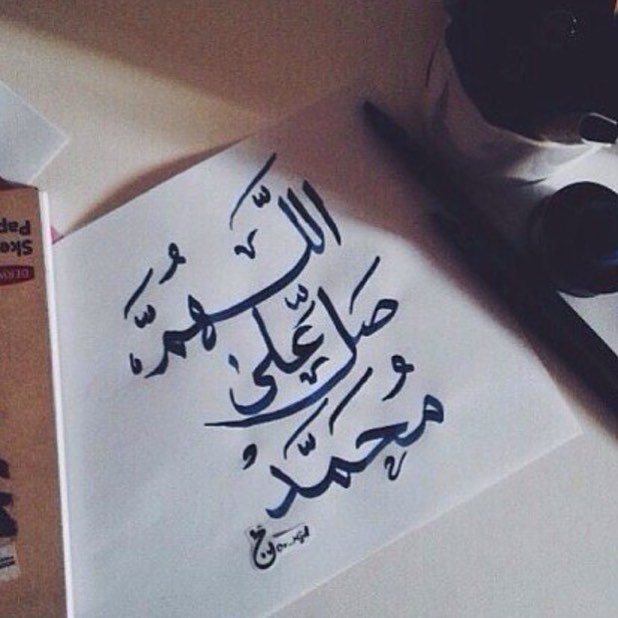 اللَّهُمَّ
صَلِّ عَلَى
مُحَمَّدْ
Ske
Pap
DERW